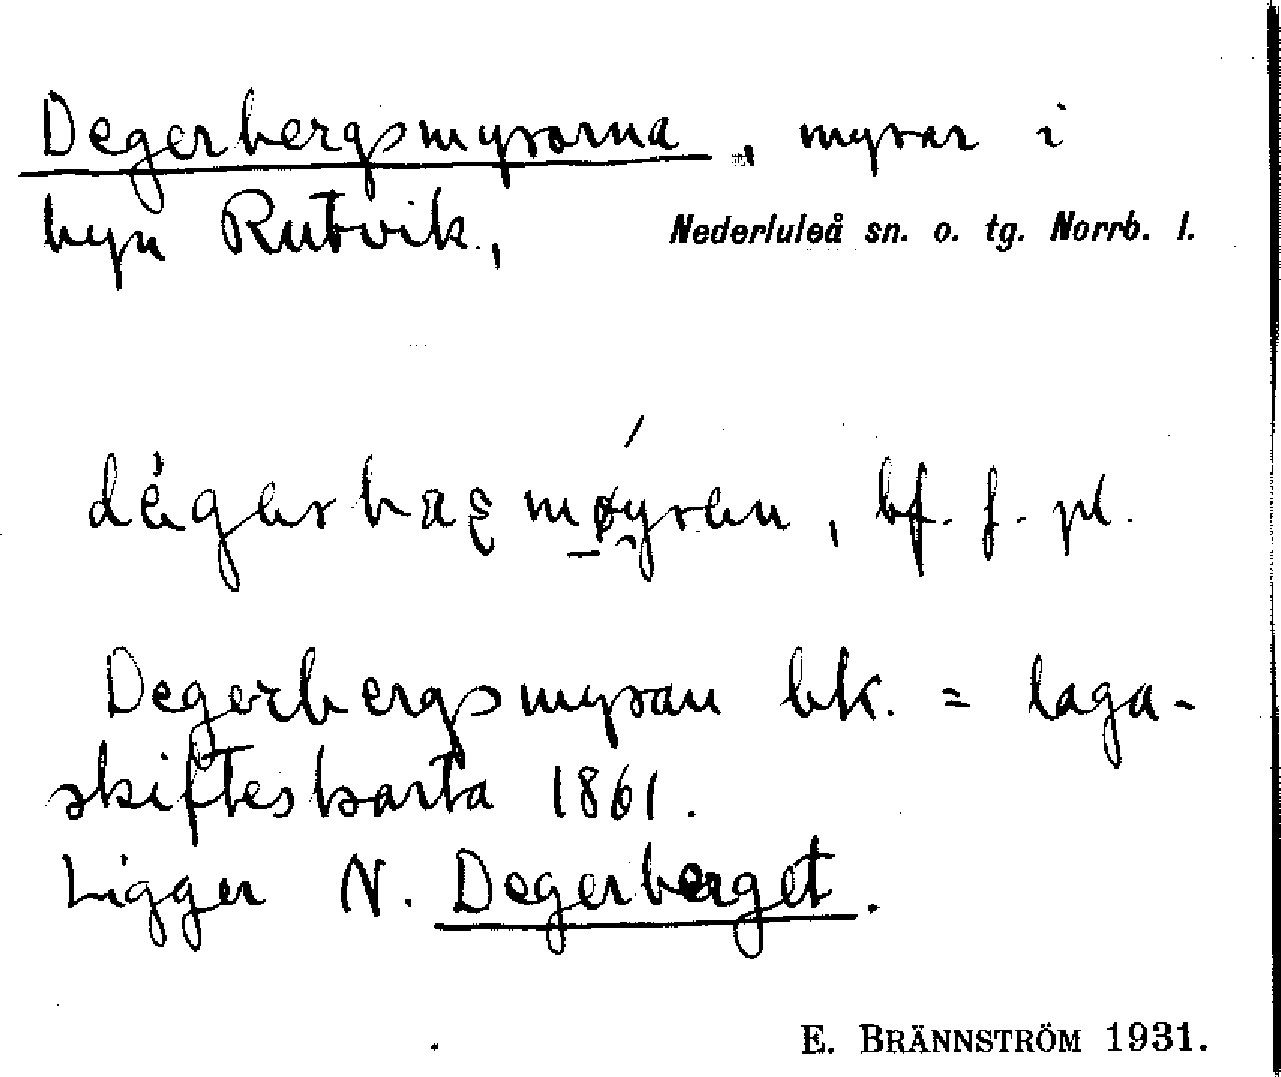 Degerbergsmyrarna, myrar i
byn Rutvik, Nederluleå sn. o. tg. Norrb. l.
bf. f. pl.
Degerbergsmyran bk. = laga-
skifteskarta 1861.
Ligger N. Degerberget.
E. BRÄNNSTRÖM 1931.